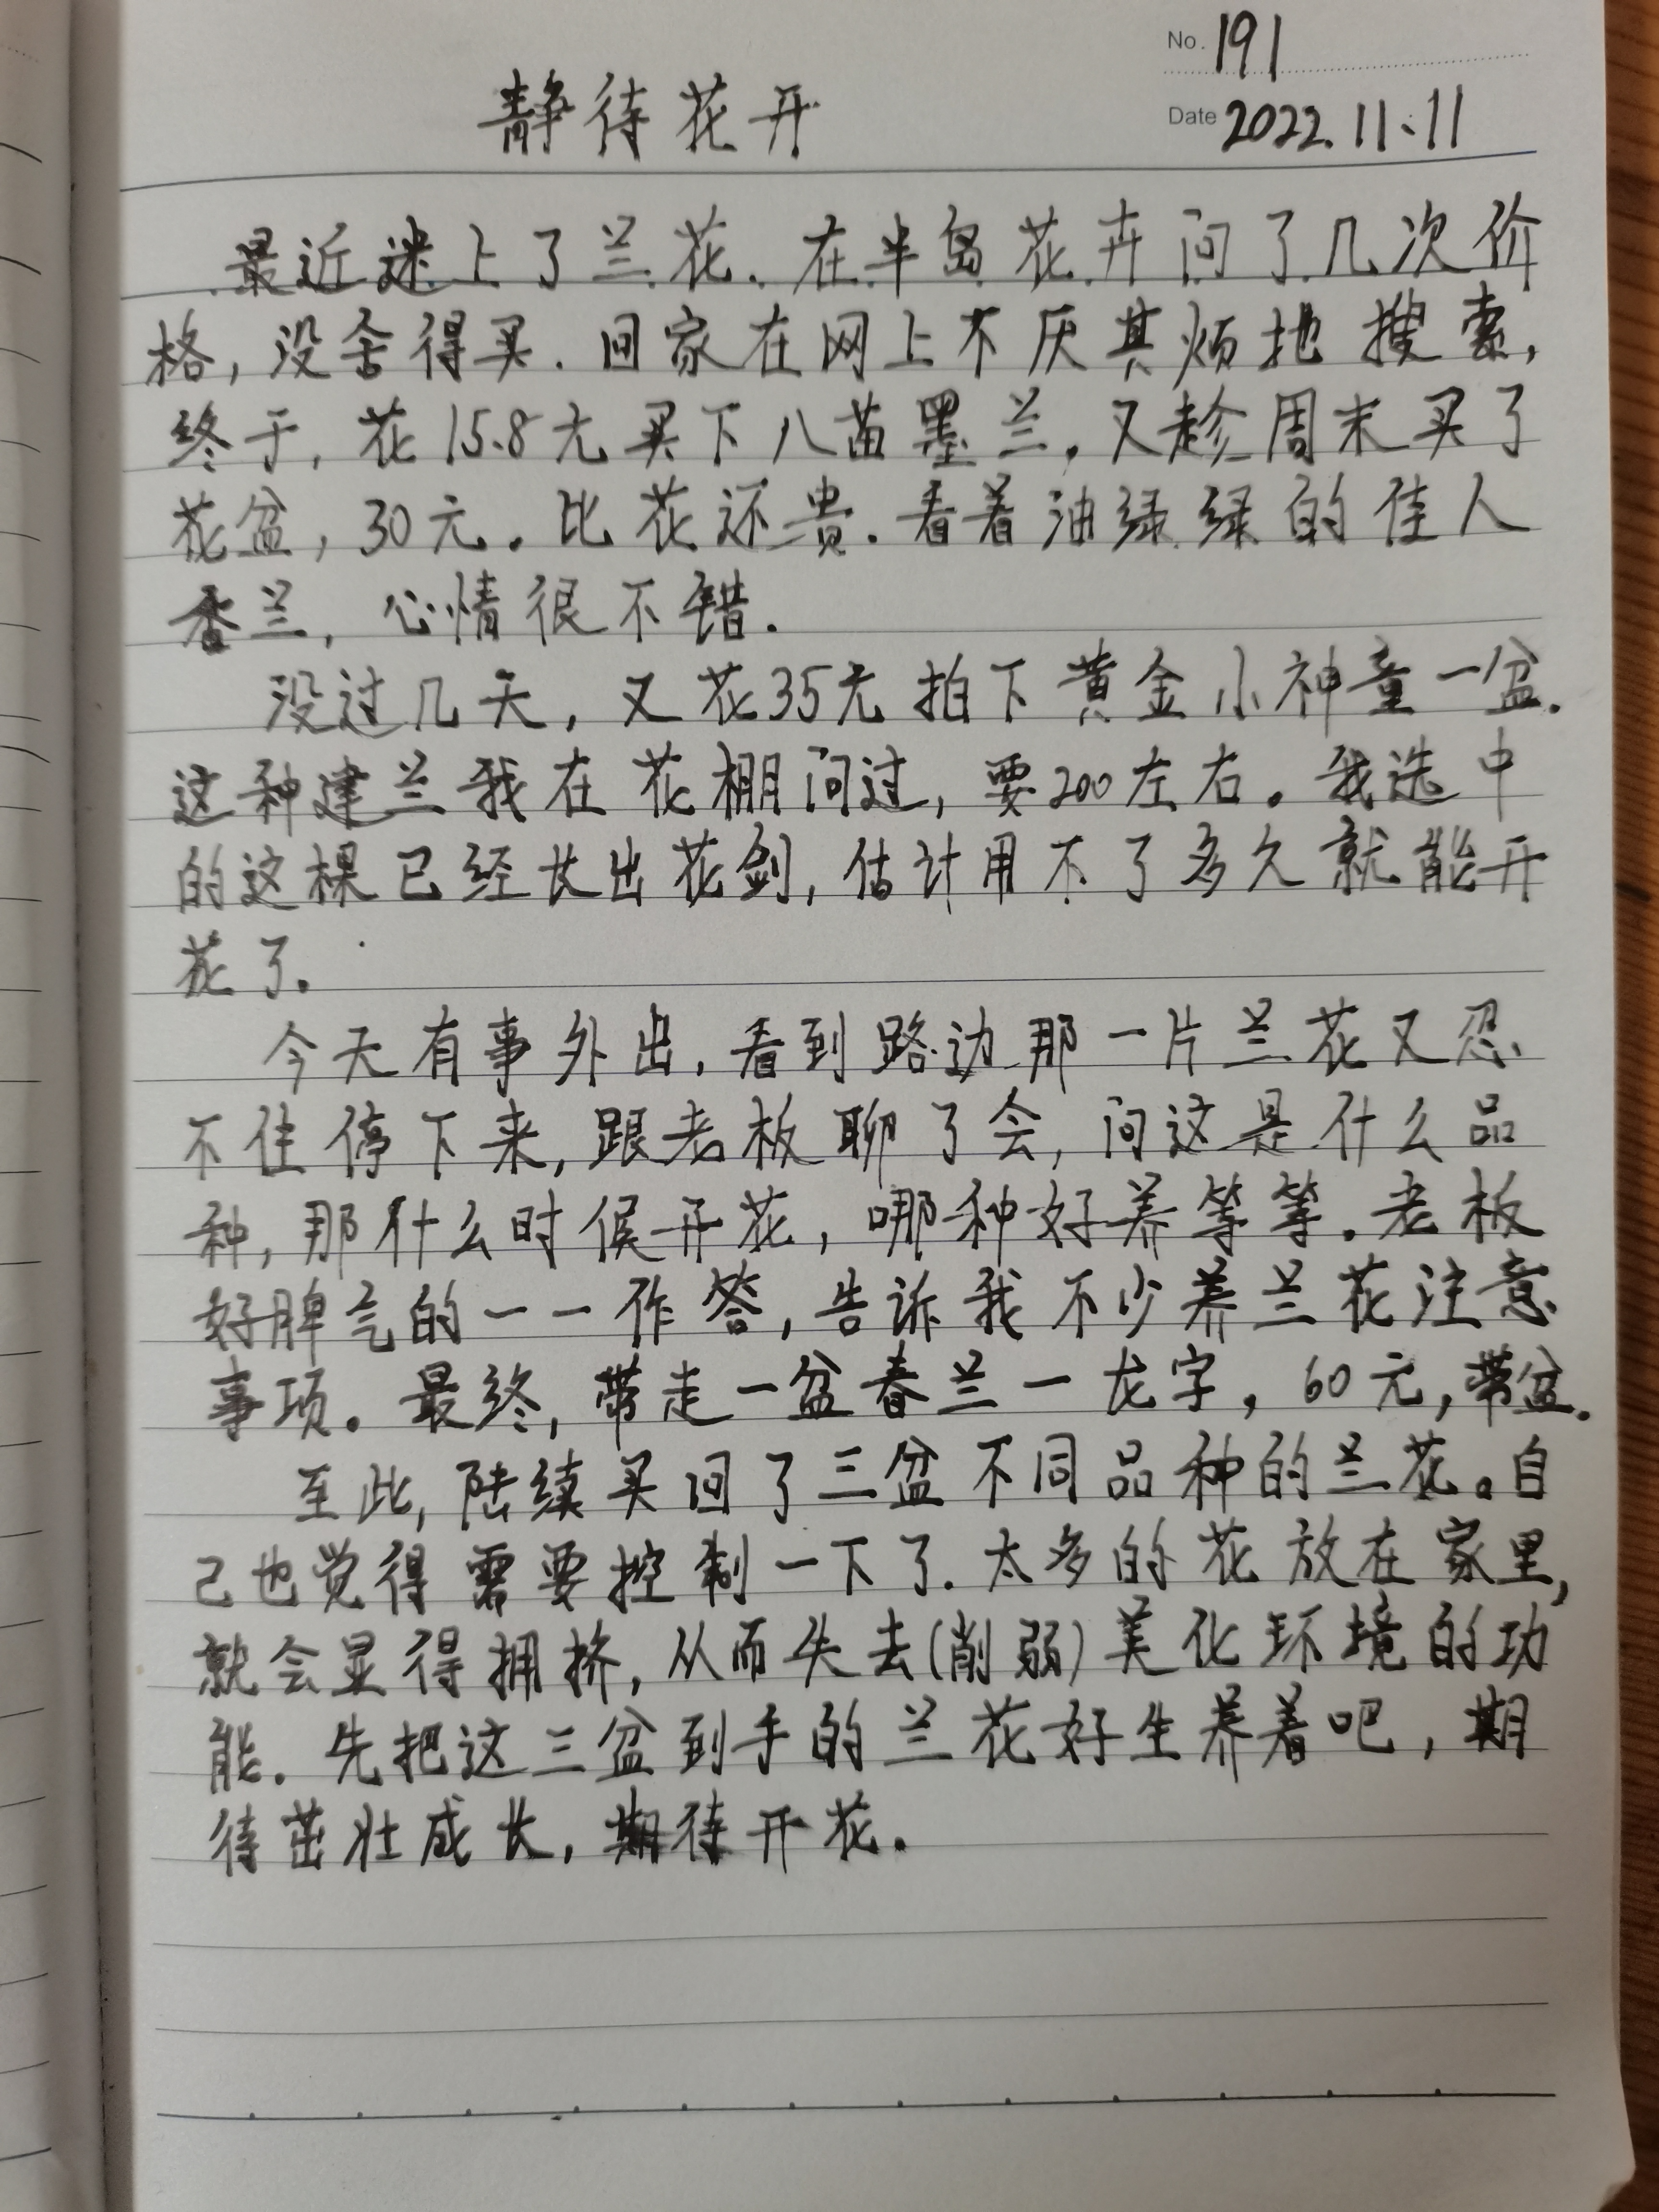 No. 191
静待花开
Date 2022.11.11
最近迷上了兰花.在半岛花卉问了几次价
格,没舍得买.回家在网上不厌其烦地搜索,
终于,花15.8元买下八苗墨兰,又趁周末买了
花盆,30元。比花还贵.看着油绿绿的佳人
香兰,心情很不错.
没过几天,又花35元拍下黄金小神童一盆.
这种建兰我在花棚问过,要200左右。我选中
的这棵已经长出花剑,估计用不了多久就能开
花了.
今天有事外出,看到路边那一片兰花又忍
不住停下来,跟老板聊了会,问这是什么品
种,那什么时候开花,哪种好养等等.老板
好脾气的一一作答,告诉我不少养兰花注意
事项。最终,带走一盆春兰一龙字,60元,带盆.
至此,陆续买回了三盆不同品种的兰花。自
己也觉得需要控制一下了.太多的花放在家里,
就会显得拥挤,从而失去(削弱)美化环境的功
能.先把这三盆到手的兰花好生养着吧,期
待茁壮成长,期待开花.